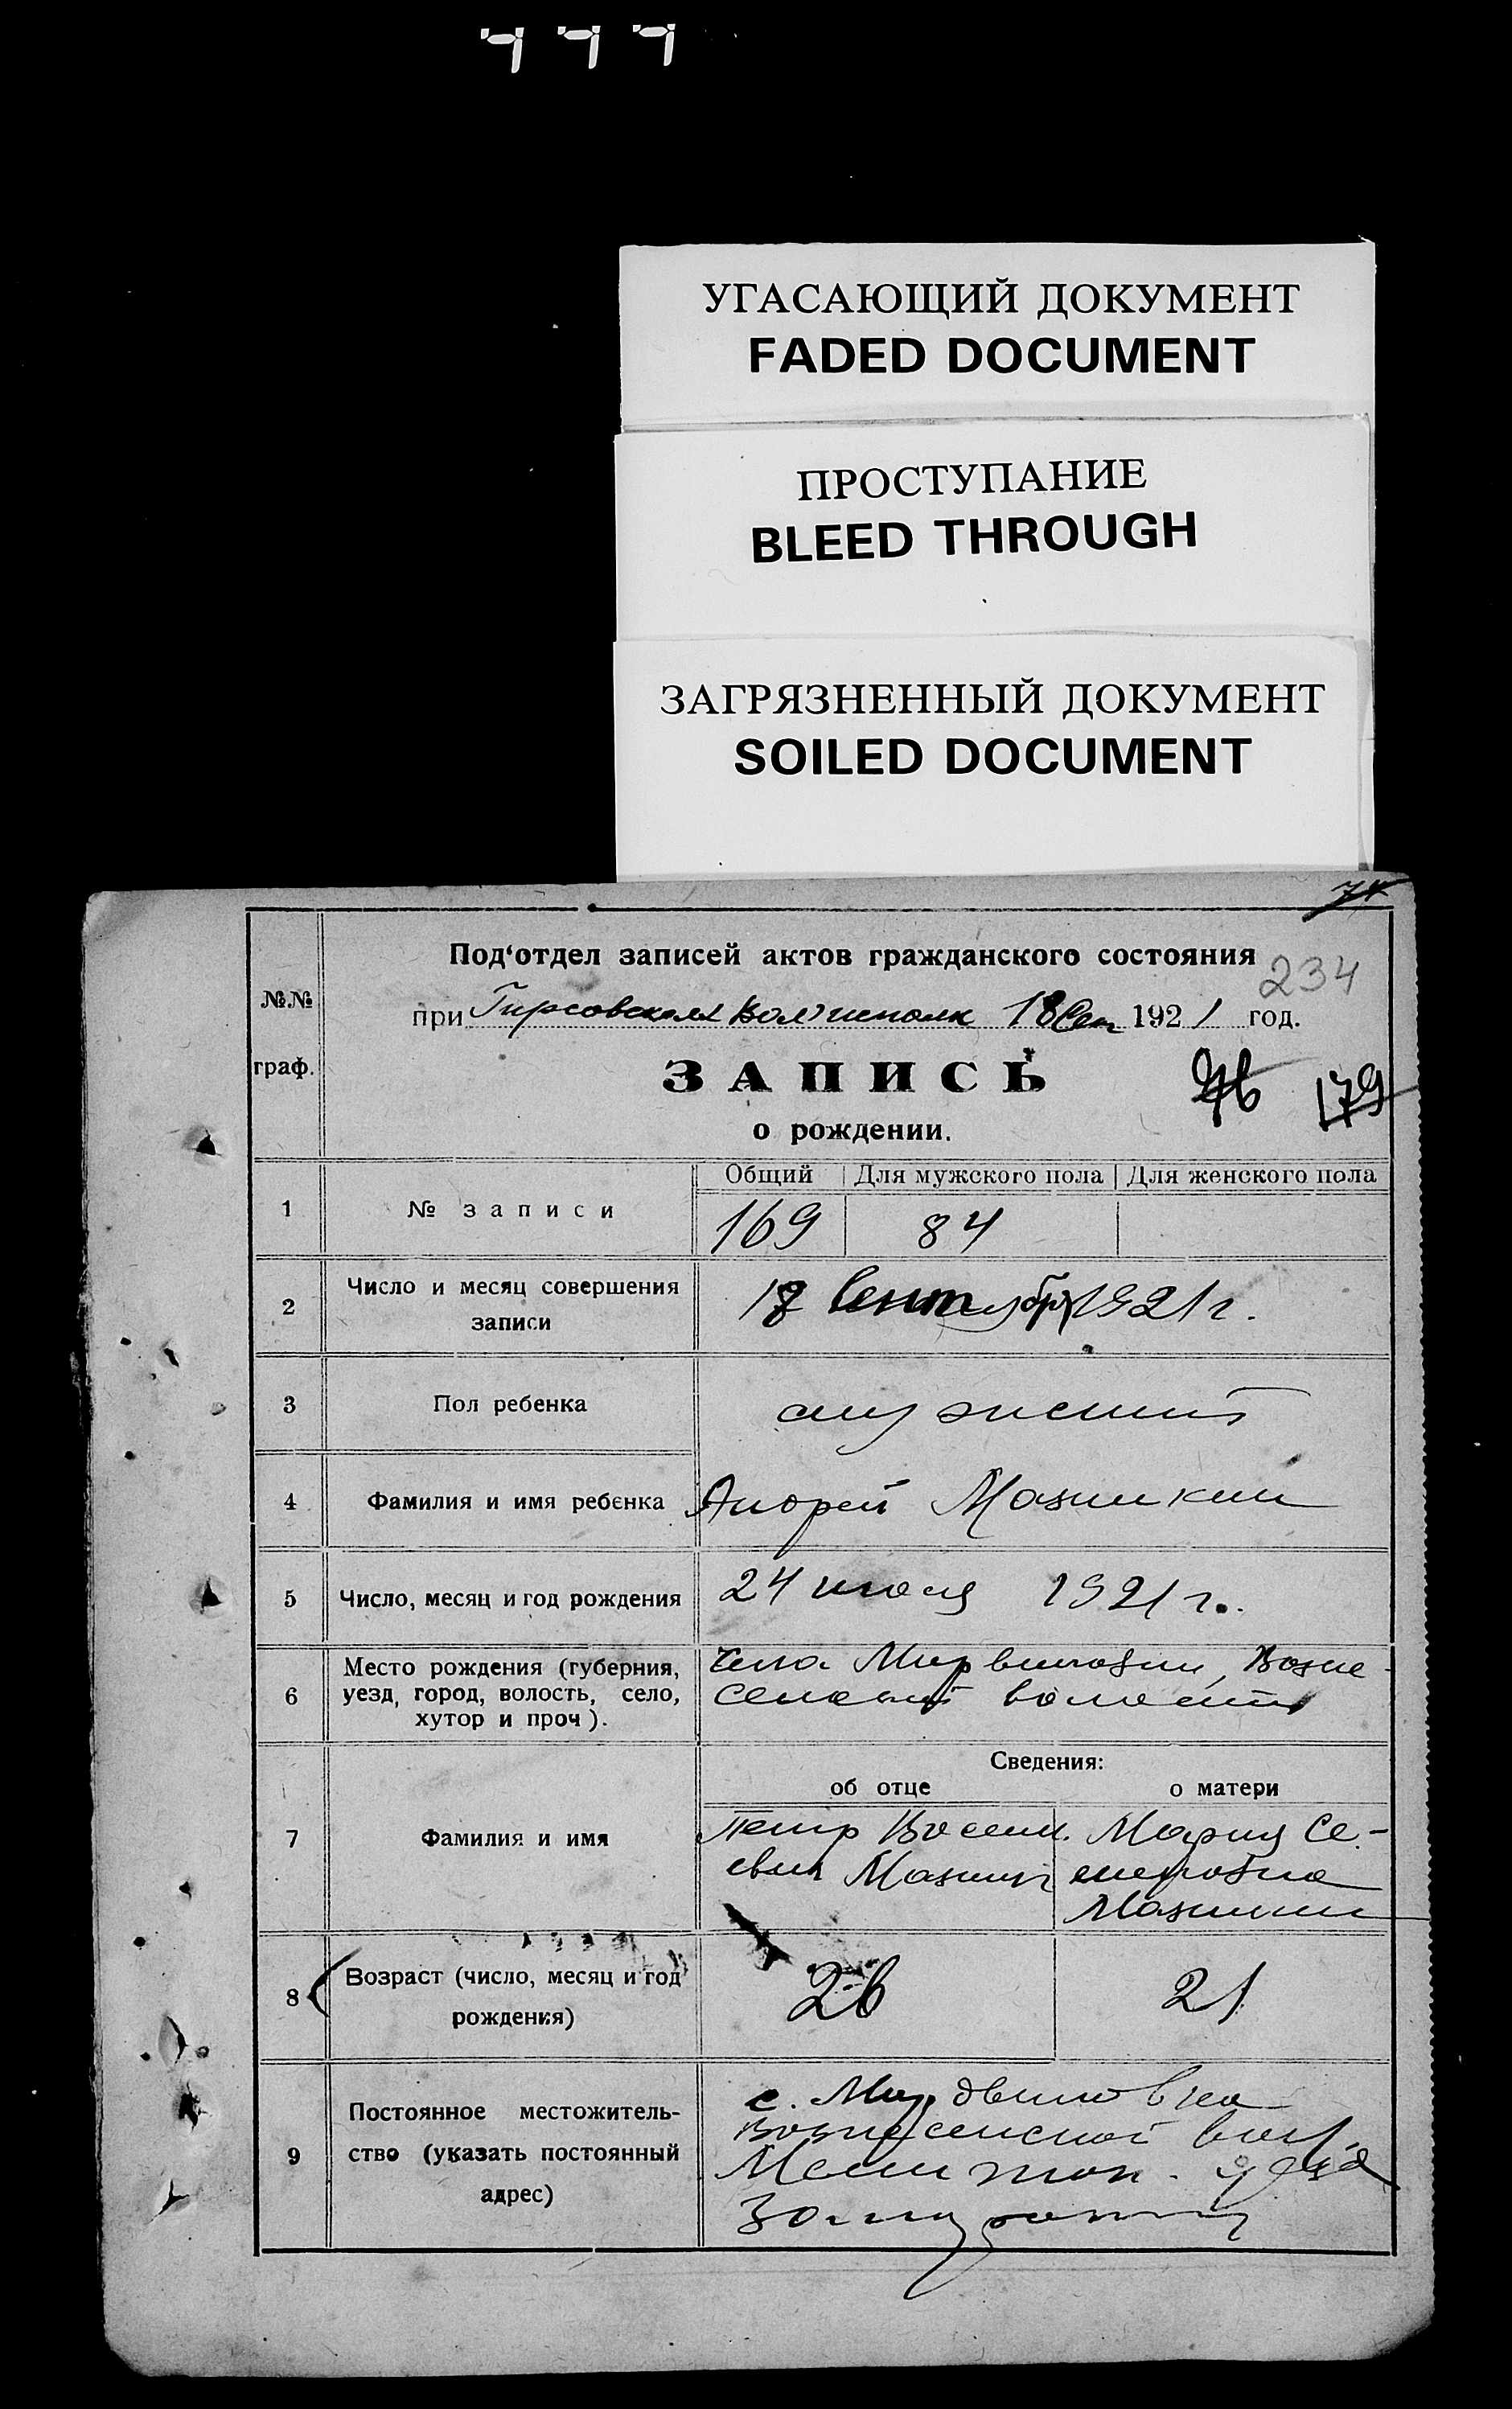 УГАСАЮЩИЙ ДОКУМЕНТ
FADED DOCUMENT
ПРОСТУПАНИЕ
BLEED THROUGH
ЗАГРЯЗНЕННЫЙ ДОКУМЕНТ
SOILED DOCUMENT
74
Под‘отдел записей актов гражданского состояния
234
№№
граф.
при 18 Сен 1921 год.
ЗАПИСЬ
179
о рождении.
Общий Для мужского пола Для женского пола
1 № записи 169 84
2 Число и месяц совершения
записи
18 Сентября 1921 г.
3 Пол ребенка мужской
4 Фамилия и имя ребенка Андрей
5 Число, месяц и год рождения 24 июля 1921 г.
6 Место рождения (губерния,
уезд, город, волость, село,
хутор и проч).
Села Возне-
сенской волости
Сведения:
об отце о матери
7 Фамилия и имя
Петр Васил.
евич
Мария Се-
8 Возраст (число, месяц и год
рождения)
26 21
9 Постоянное местожитель-
ство (указать постоянный
адрес)
с.
Вознесенской вол
Мелитоп. уезда